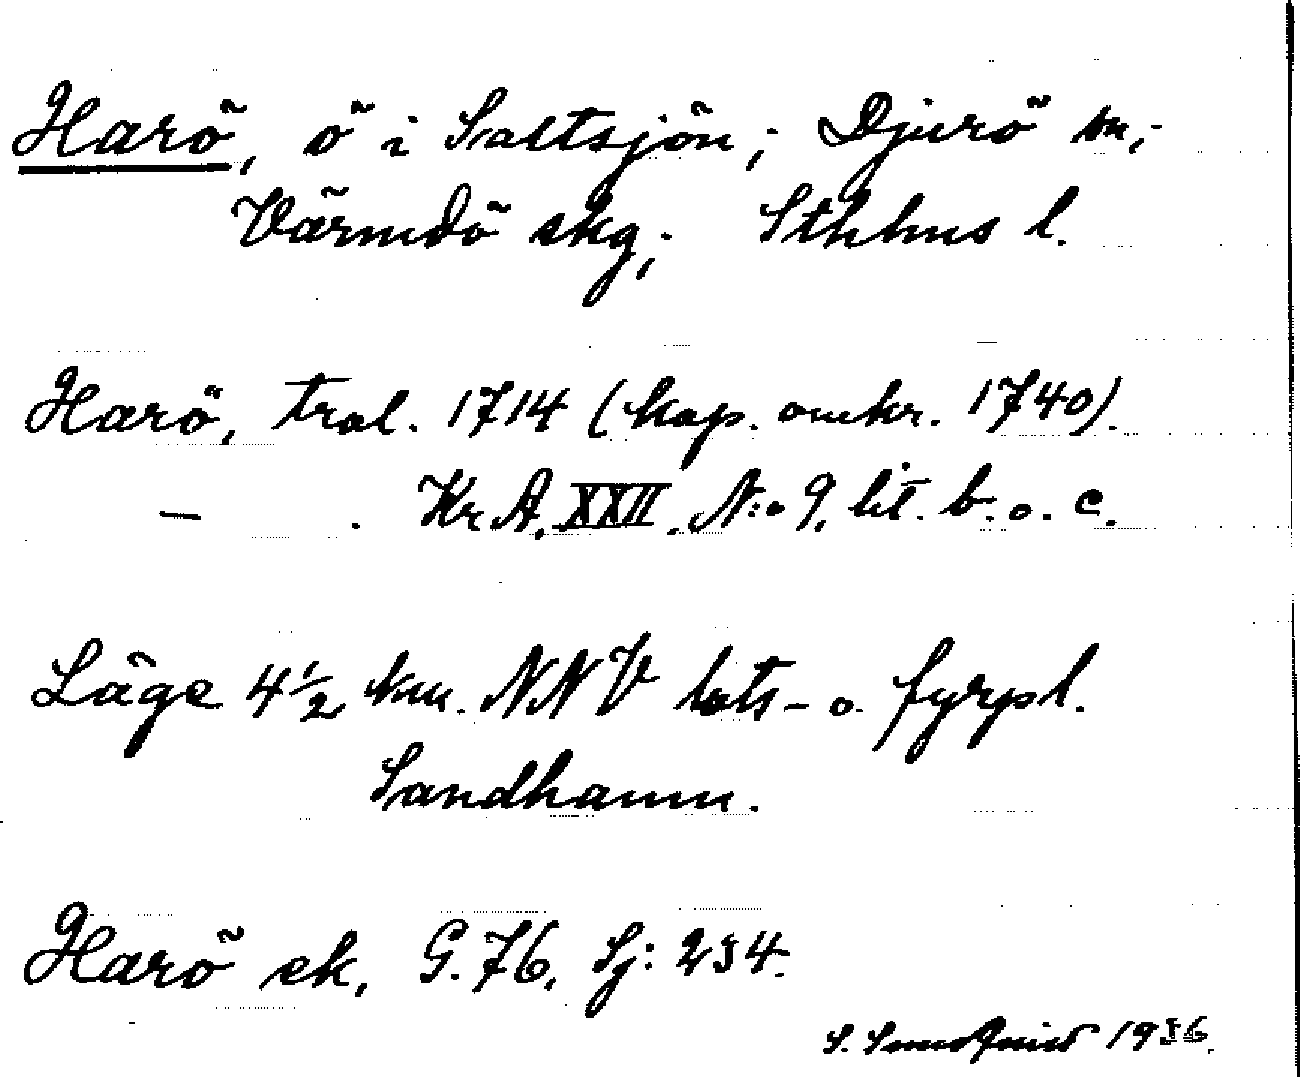 Harö, ö i Saltsjön; Djurö sn;
Värmdö skg; Sthlms l.
Harö, tral. 1714 (kop. omkr. 1740).
— . Kr A. XXII. N:o 9, lit. b. o. c.
Läge 4½ km. NNV lots- o. fyrpl.
Sandhamn.
Harö ek. G. 76. Sj: 234.
S. 1936.